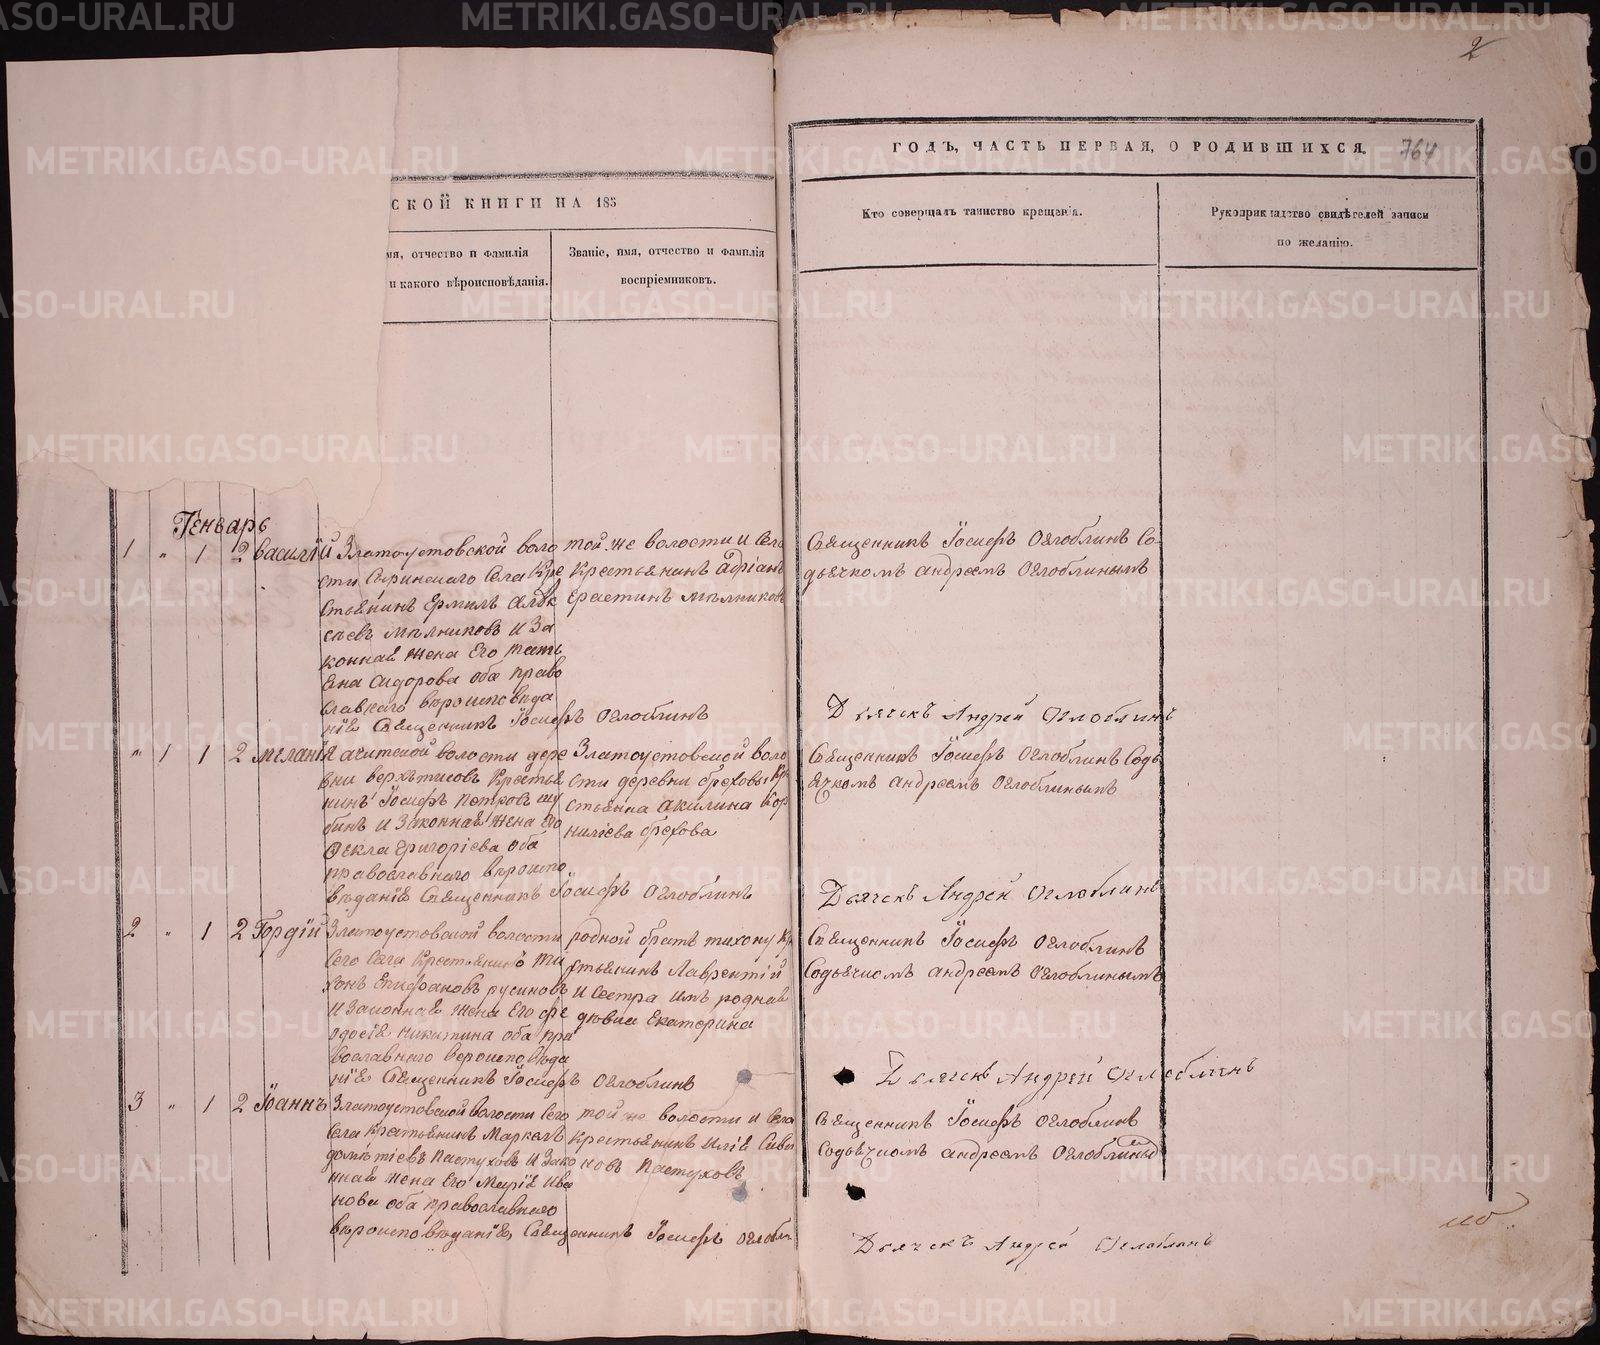 2
ГОДЪ, ЧАСТЬ ПЕРВАЯ, О РОДИВШИХСЯ.
764
СКОЙ КНИГИ НА 185
мя, отчество и фамилія
и какого вѣроисповѣданія.
Званіе, имя, отчество и фамилія
воспріемниковъ.
Кто совершалъ таинство крещенія.
Рукоприкладство свидѣтелей записи
по желанію.
Генварь
1 " 1 2 Василій
Златоустовской воло
сти Сыринскаго Села Кре
стьянинъ Ермилъ Алѣк
сѣевъ Мѣлниковъ и За
коннаѣ жена Его Тать
ѣна Сидорова оба право
славнаго вѣроисповѣда
ніѣ Священникъ Іосифъ Оглоблинъ
той же волости и Сего
Крестьѣнинъ Адріанъ
Ерастинъ Мѣлниковъ
Священникъ Іосифъ Оглоблинъ Со
дьячкомъ Андреемъ Оглоблинымъ
Дьячекъ Андрей Оглоблинъ
" 1 1 2 Меланія
Ачитской волости дере
вни Верхътисовъ Крестья
нинъ Іосифъ Петровъ
бинъ и Законнаѣ жена Его
Фекла Григоріева оба
православнаго вѣроиспо
вѣданіѣ Священникъ Іосифъ Оглоблинъ
Златоустовской воло
сти деревни Ореховы Кре
стьянка Акилина Кор
нилиева Орехова
Священникъ Іосифъ Оглоблинъ Содь
ячкомъ Андреемъ Оглоблинымъ
Дьячекъ Андрей Оглоблинъ
2 " 1 2 Гордій
Златоустовской волости
Сего Села Крестьянинъ Ти
хонъ Епифановъ Русиновъ
и Законнаѣ жена Его Фе
одосіѣ Никитина оба пра
вославнаго вероисповѣда
ніѣ Священникъ Іосифъ Оглоблинъ
родной братъ Тихону Кре
стьянинъ Лаврентій
и Сестра имъ роднаѣ
дѣвка Екатерина
Священникъ Іосифъ Оглоблинъ
Содьячкомъ Андреемъ Оглоблинымъ
Дьячекъ Андрей Оглоблинъ
3 " 1 2 Іоаннъ
Златоустовской волости Сего
Села Крестьянинъ Маркелъ
Дометіевъ Пастуховъ и Зако
ннаѣ жена Его Маріѣ Ива
нова оба православнаго
вѣроисповѣданіѣ, Священникъ Іосифъ Оглобли
той же волости и Села
Крестьянинъ Иліѣ Сави
новъ Пастуховъ
Священникъ Іосифъ Оглоблинъ
Содьячкомъ Андреемъ Оглоблины
Дьячекъ Андрей Оглоблинъ
METRIKI.GASO-URAL.RU